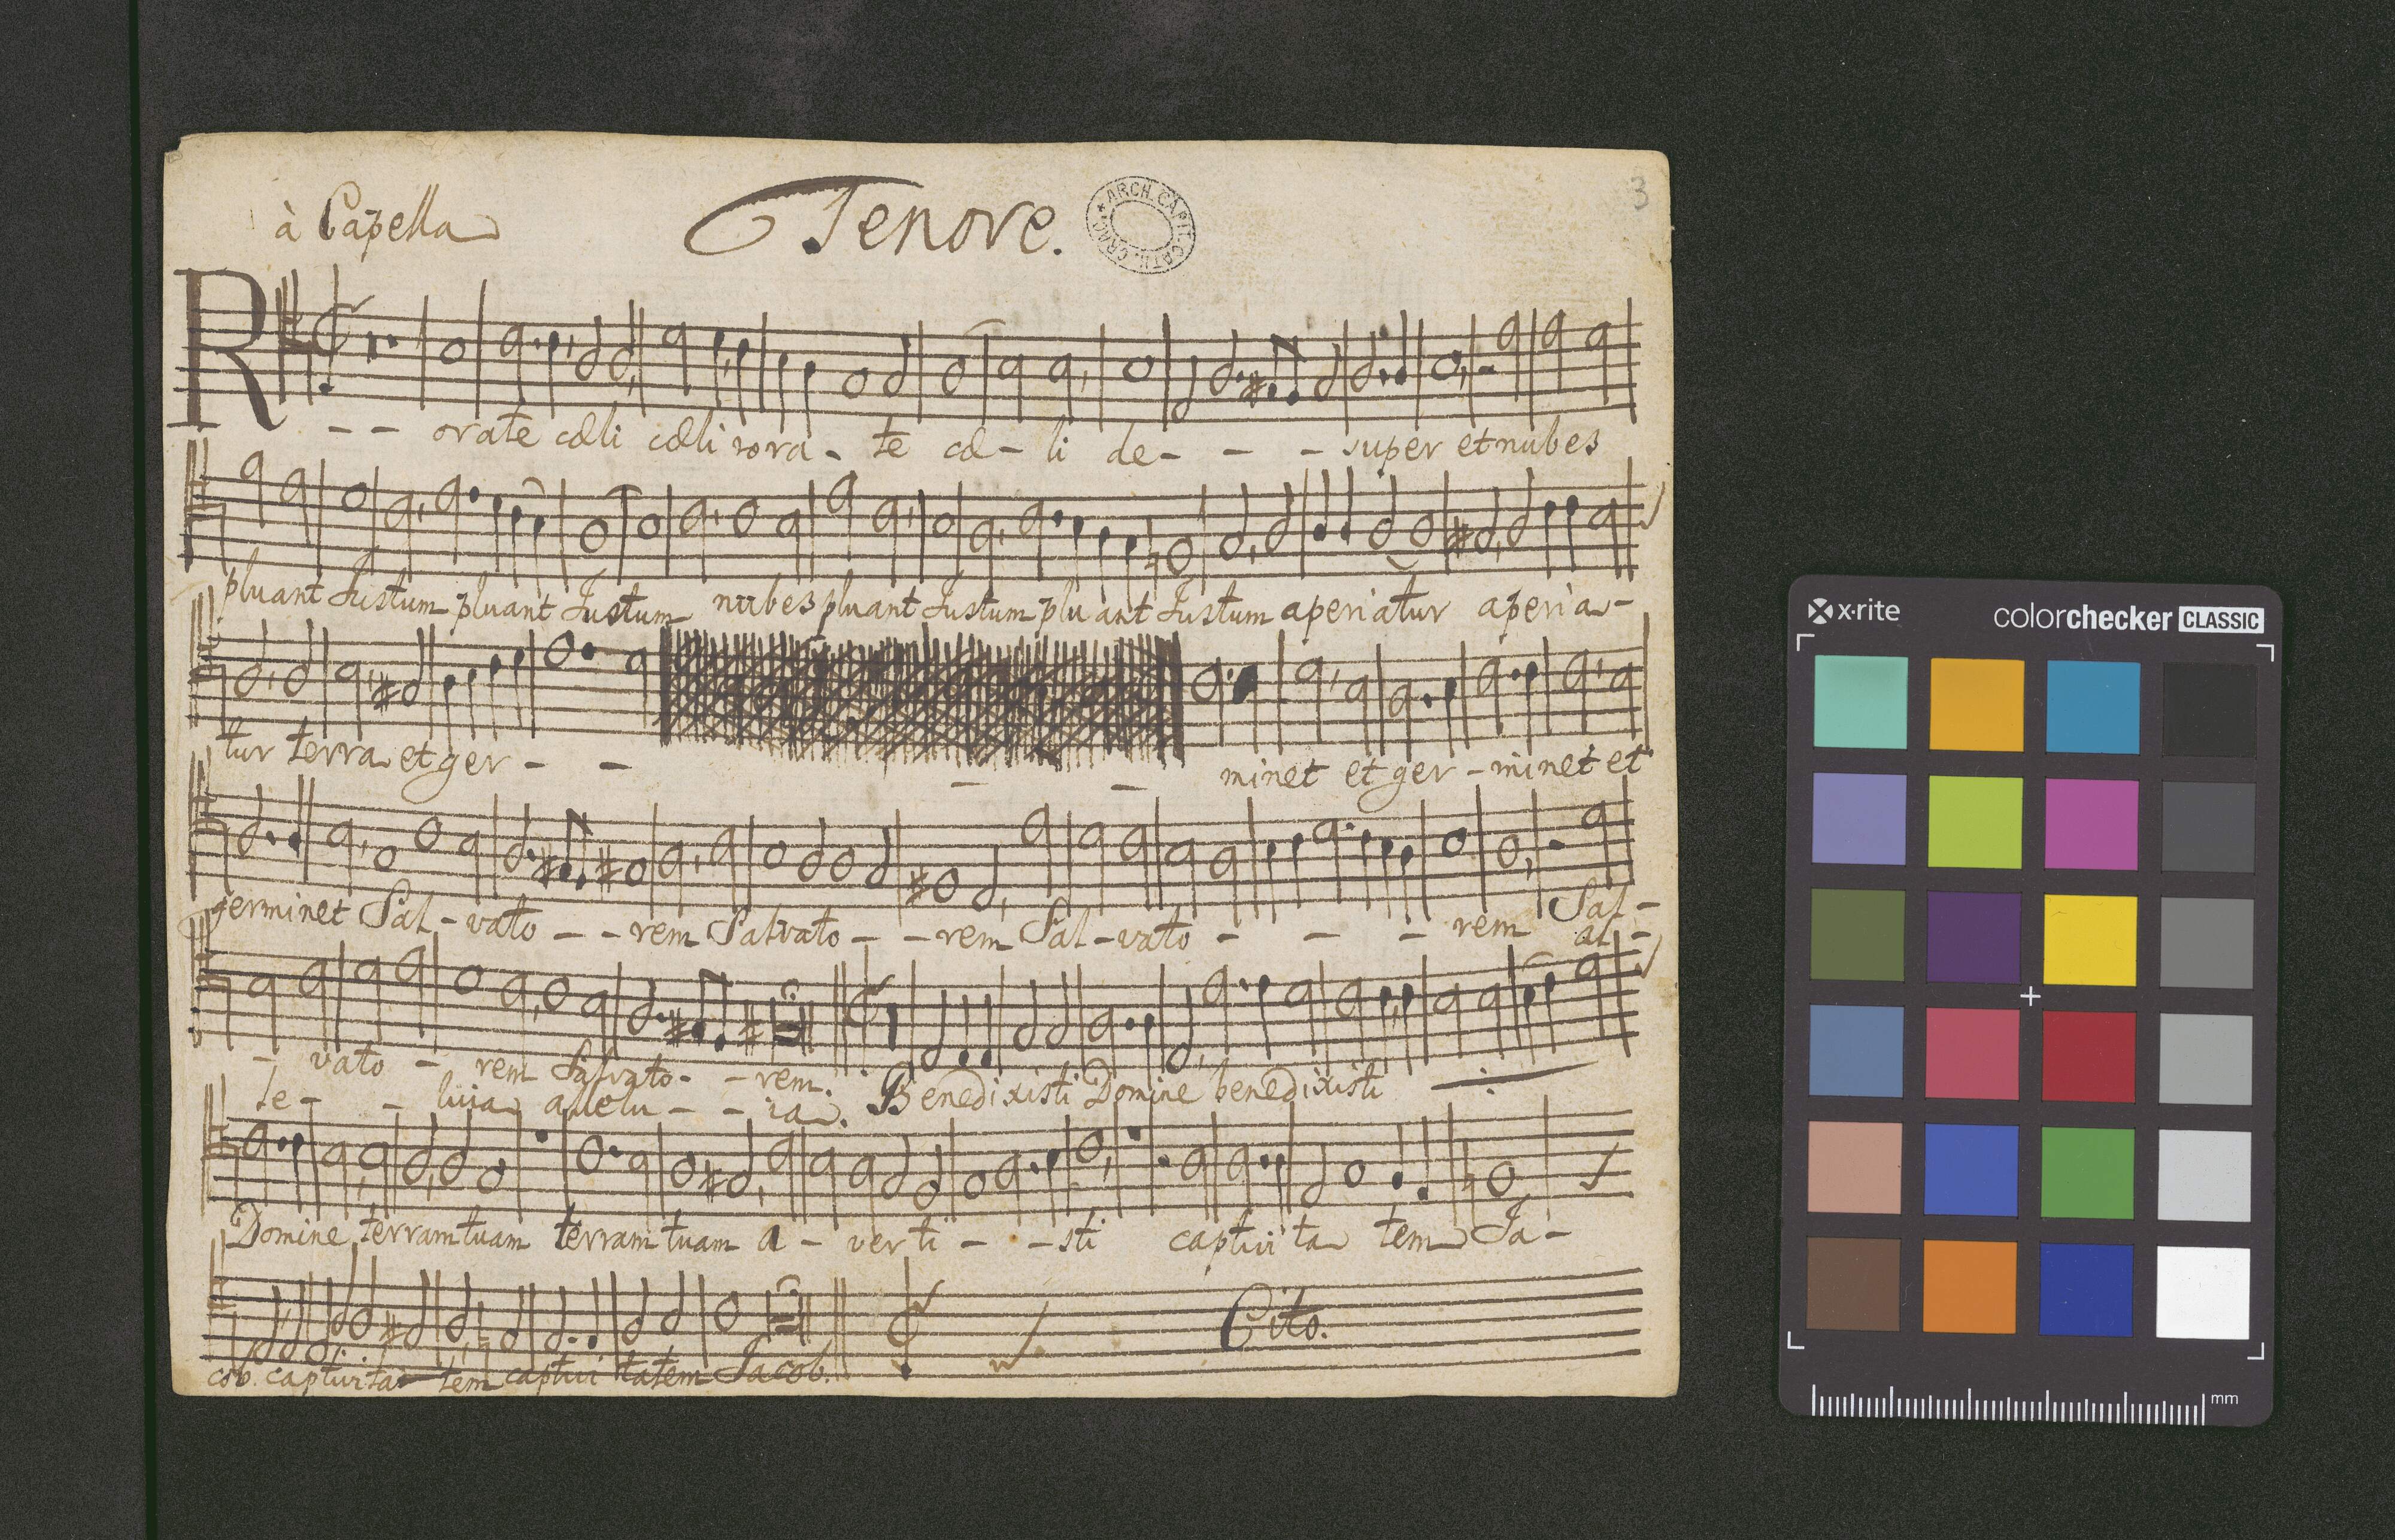 à Capella
Tenore.
ARCH. CAPIT. CATH. CRAC.
3
R - - orate cæli cæli rora - te cæ - li de - - - super et nubes
pluant Justum pluant Justum nubes pluant Justum pluant Justum aperiatur aperia -
tur terra et ger - - - - minet et ger - minet et
germinet Sal - vato - - rem Salvato - - rem Sal - vato - - - rem Sal -
al -
- vato - rem Salvato - - rem. Benedixisti Domine benedixisti
le - - luia allelu - - ia.
Domine terram tuam terram tuam a - verti - - sti captivita tem Ja -
cob. captivita tem captivi tatem Jacob.
Cito.
x-rite
colorchecker CLASSIC
mm